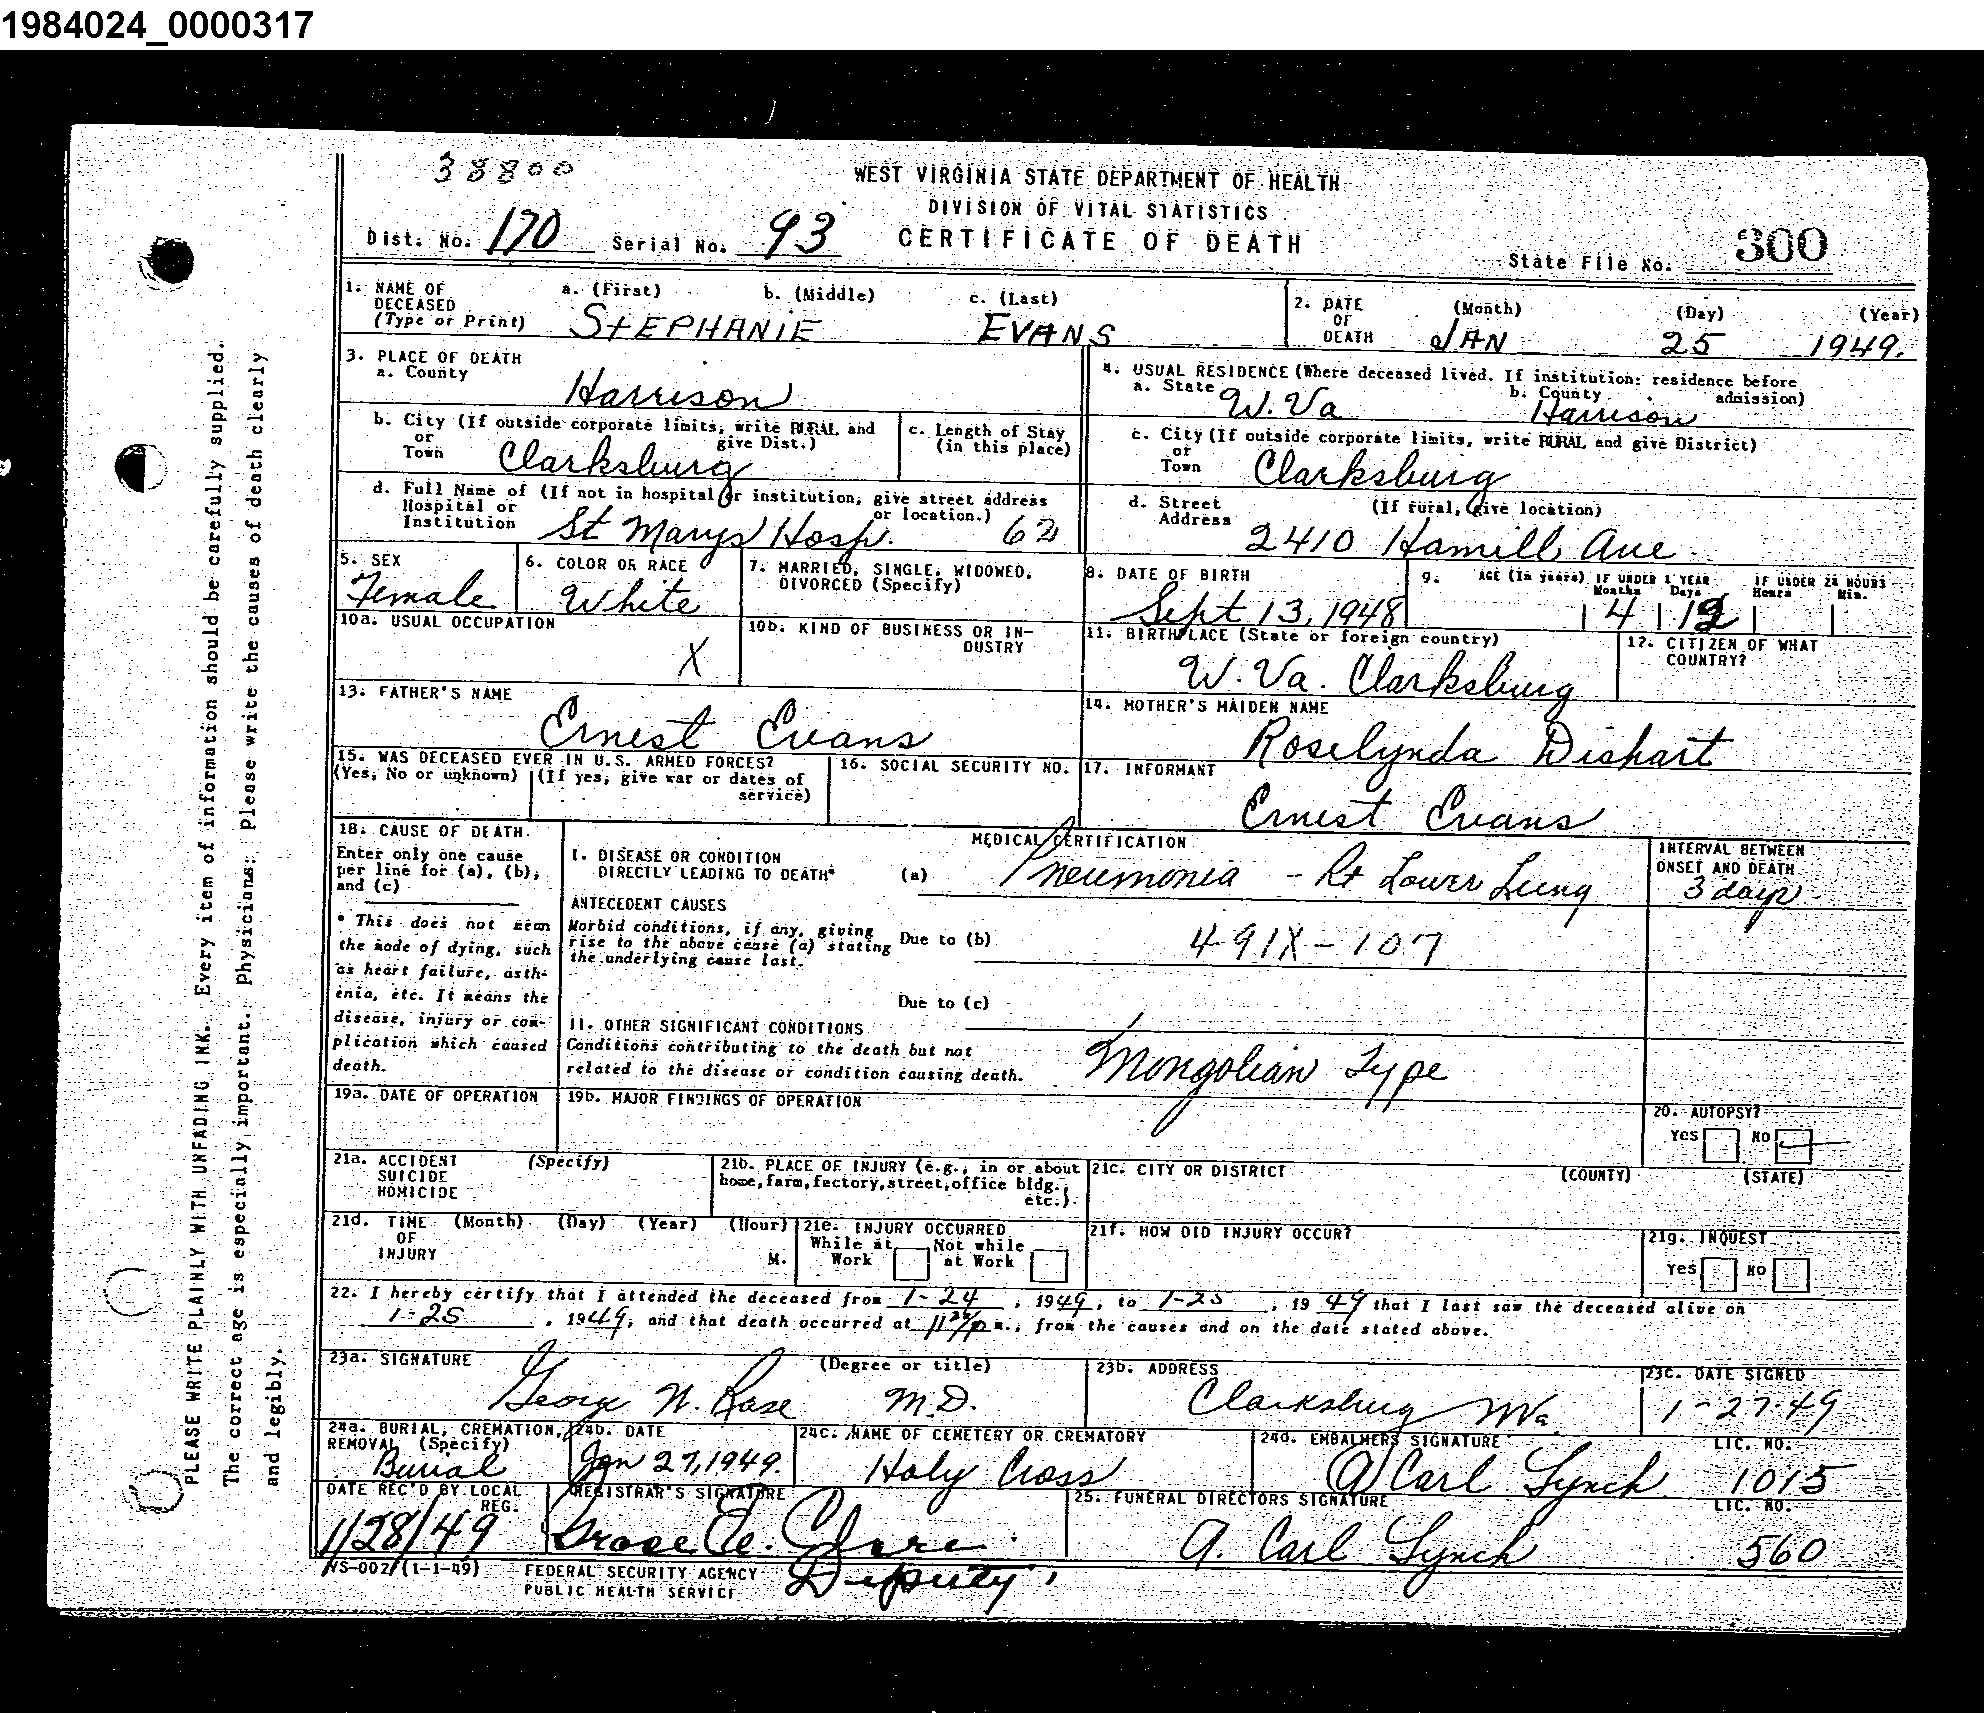 1984024_0000317
38800
WEST VIRGINIA STATE DEPARTMENT OF HEALTH
DIVISION OF VITAL STATISTICS
Dist. No. 170 Serial No. 93 CERTIFICATE OF DEATH
State File No. 300
1. NAME OF DECEASED (Type or Print) a. (First) b. (Middle) c. (Last)
STEPHANIE EVANS
2. DATE OF DEATH (Month) (Day) (Year)
JAN 25 1949.
3. PLACE OF DEATH
a. County
Harrison
4. USUAL RESIDENCE (Where deceased lived. If institution: residence before admission)
a. State W. Va b. County Harrison
b. City (If outside corporate limits, write RURAL and give Dist.)
or
Town Clarksburg
c. Length of Stay
(in this place)
c. City (If outside corporate limits, write RURAL and give District)
or
Town Clarksburg
d. Full Name of (If not in hospital or institution, give street address or location.)
Hospital or
Institution St Marys Hosp. 62
d. Street Address (If rural, give location)
2410 Hamill Ave
5. SEX
Female
6. COLOR OR RACE
White
7. MARRIED, SINGLE, WIDOWED,
DIVORCED (Specify)
8. DATE OF BIRTH
Sept 13, 1948
9. AGE (In years) IF UNDER 1 YEAR IF UNDER 24 HOURS
Months Days Hours Min.
4 12
10a. USUAL OCCUPATION
X
10b. KIND OF BUSINESS OR IN-
DUSTRY
11. BIRTHPLACE (State or foreign country)
W. Va. Clarksburg
12. CITIZEN OF WHAT
COUNTRY?
13. FATHER'S NAME
Ernest Evans
14. MOTHER'S MAIDEN NAME
Roselynda Dishart
15. WAS DECEASED EVER IN U.S. ARMED FORCES?
(Yes, No or unknown) (If yes, give war or dates of
service)
16. SOCIAL SECURITY NO.
17. INFORMANT
Ernest Evans
18. CAUSE OF DEATH.
Enter only one cause
per line for (a), (b),
and (c)
* This does not mean
the mode of dying, such
as heart failure, asth-
enia, etc. It means the
disease, injury or com-
plication which caused
death.
MEDICAL CERTIFICATION
I. DISEASE OR CONDITION
DIRECTLY LEADING TO DEATH* (a) Pneumonia - Rt Lower Lung
INTERVAL BETWEEN
ONSET AND DEATH
3 days
ANTECEDENT CAUSES
Morbid conditions, if any, giving
rise to the above cause (a) stating
the underlying cause last.
Due to (b) 491X-107
Due to (c)
II. OTHER SIGNIFICANT CONDITIONS
Conditions contributing to the death but not
related to the disease or condition causing death.
Mongolian Type
19a. DATE OF OPERATION
19b. MAJOR FINDINGS OF OPERATION
20. AUTOPSY?
Yes No
21a. ACCIDENT (Specify)
SUICIDE
HOMICIDE
21b. PLACE OF INJURY (e.g., in or about
home, farm, factory, street, office bldg.,
etc.)
21c. CITY OR DISTRICT (COUNTY) (STATE)
21d. TIME (Month) (Day) (Year) (Hour)
OF
INJURY M.
21e. INJURY OCCURRED
While at Work Not while at Work
21f. HOW DID INJURY OCCUR?
21g. INQUEST
Yes No
22. I hereby certify that I attended the deceased from 1-24, 1949, to 1-25, 1949 that I last saw the deceased alive on
1-25, 1949, and that death occurred at m., from the causes and on the date stated above.
23a. SIGNATURE (Degree or title)
George N. Rase M.D.
23b. ADDRESS
Clarksburg WVa.
23c. DATE SIGNED
1-27-49
24a. BURIAL, CREMATION,
REMOVAL (Specify)
Burial
24b. DATE
Jan 27, 1949.
24c. NAME OF CEMETERY OR CREMATORY
Holy Cross
24d. EMBALMERS SIGNATURE LIC. NO.
A Carl Lynch 1015
DATE REC'D BY LOCAL
REG.
1/28/49
REGISTRAR'S SIGNATURE
Deputy
25. FUNERAL DIRECTORS SIGNATURE LIC. NO.
A. Carl Lynch 560
VS-002 (1-1-49)
FEDERAL SECURITY AGENCY
PUBLIC HEALTH SERVICE
PLEASE WRITE PLAINLY WITH UNFADING INK. Every item of information should be carefully supplied.
The correct age is especially important. Physicians: please write the causes of death clearly
and legibly.